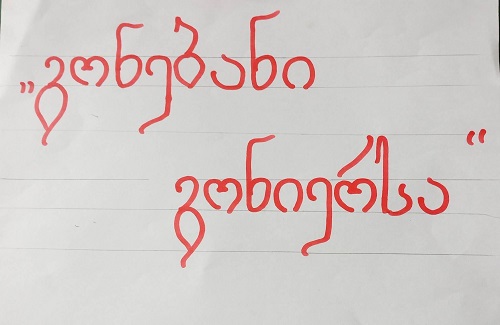 „გონებანი
გონიერსა“